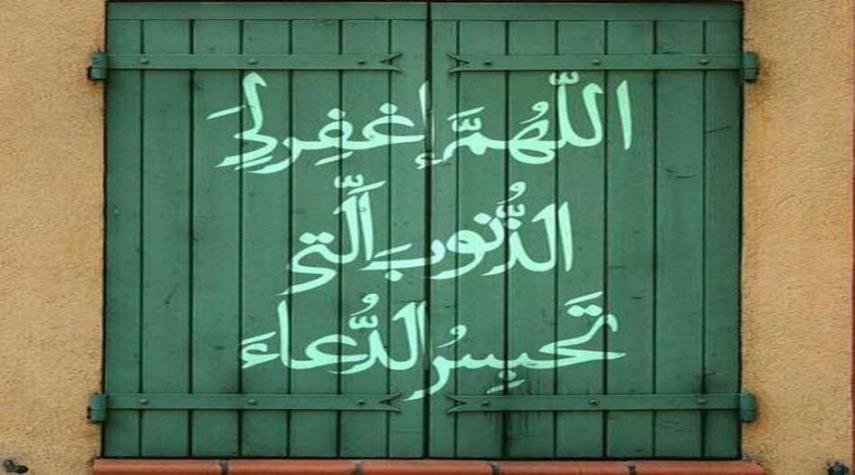 اللّهُمَّ إغفِرلِيَ
الذُّنوبَ الَّتی
تَحبِسُ الدُّعاءَ